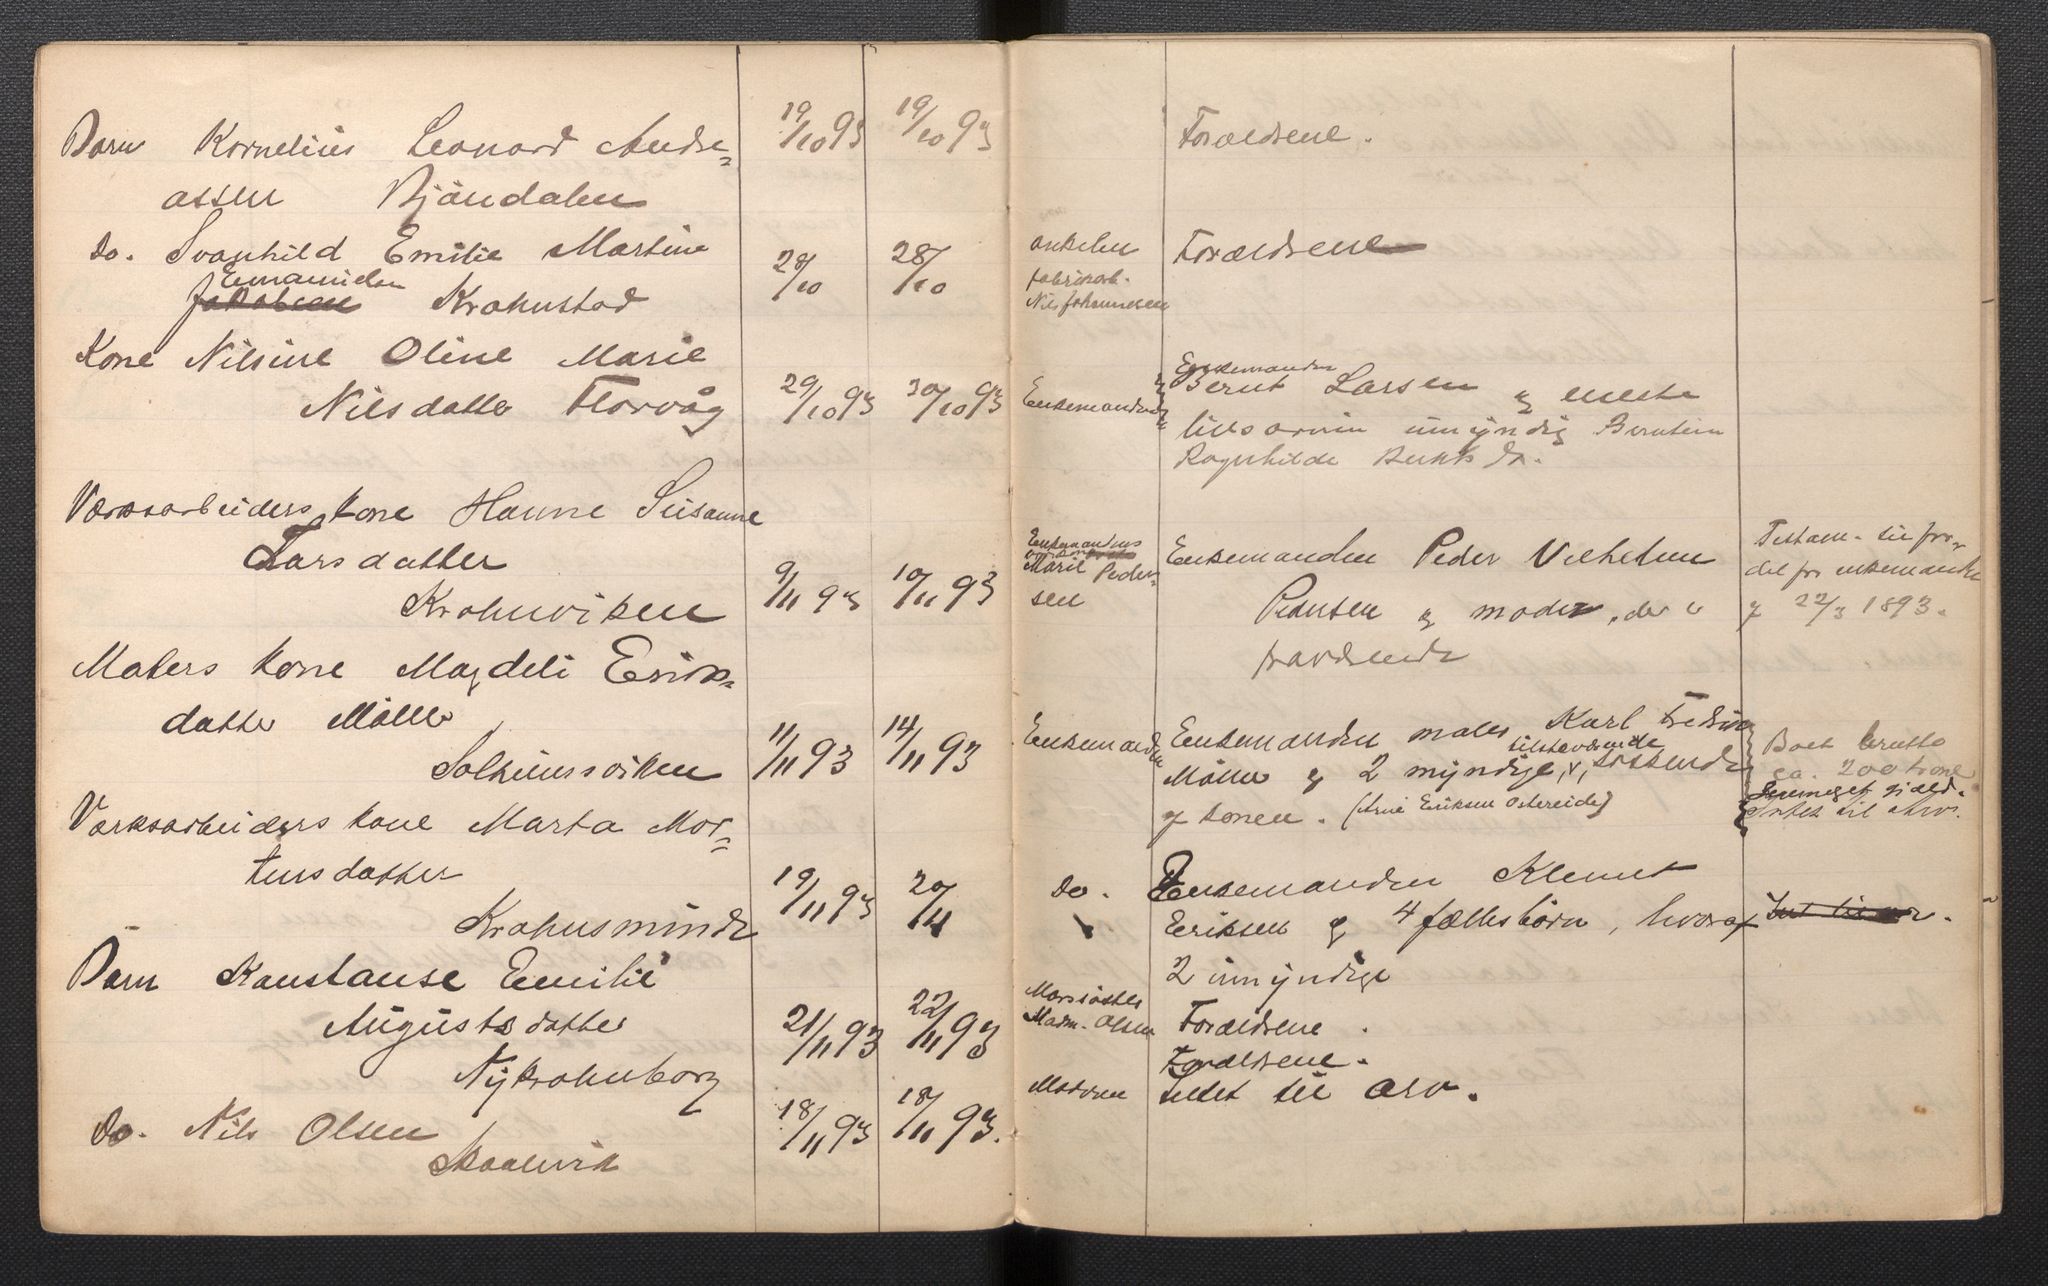 Barn Kornelius Leonard Andre=
assen Bjöndalen
19/10 93 19/10 93
Forældrene.
do. Svanhild Emilie Martine
Emanuelsen
Jakobsen Krohnstad
28/10 28/10
onkelen
fabrikarb.
Nils Johannesen
Forældrene
Kone Nilsine Oline Marie
Nilsdatter Florvåg
29/10 93 30/10 93
Enkemanden
Enkemanden
Bernt Larsen og eneste
livsarving umyndig Berntine
Ragnhilde Berntsdr.
Værksarbeiders kone Hanne Susanne
Larsdatter
Krohnviken
9/11 93 10/11 93
Enkemandens
Marie Peder=
sen
Enkemanden Peder Vilhelm
Pedersen og moder, der er
fraværende
Testam. til for=
del for enkemanden
af 22/3 1893.
Malers kone Magdeli Erik=
datter Möller
Solheimsviken
11/11 93 14/11 93
Enkemanden
Enkemanden maler Karl Fredrik
tilstedværende
Möller og 2 myndige, søskende
af konen. (Arne Eriksen Ostereide)
Boet brutto
ca. 200 kroner
Ligemeget gjæld.
Intet til arv.
Værksarbeiders kone Marta Mor=
tensdatter
Krohnsminde
19/11 93 20/11
do.
Enkemanden Klemet
Eriksen og 4 fællesbörn, hvoraf
2 umyndige
Int til arv.
Barn Konstanse Emilie
Augustsdatter
Nykrohnborg
21/11 93 22/11 93
Morsöster
Madm. Olsen
Forældrene.
do. Nils Olsen
Skaalevik
18/11 93 18/11 93.
Moderen
Forældrene.
Intet til arv.